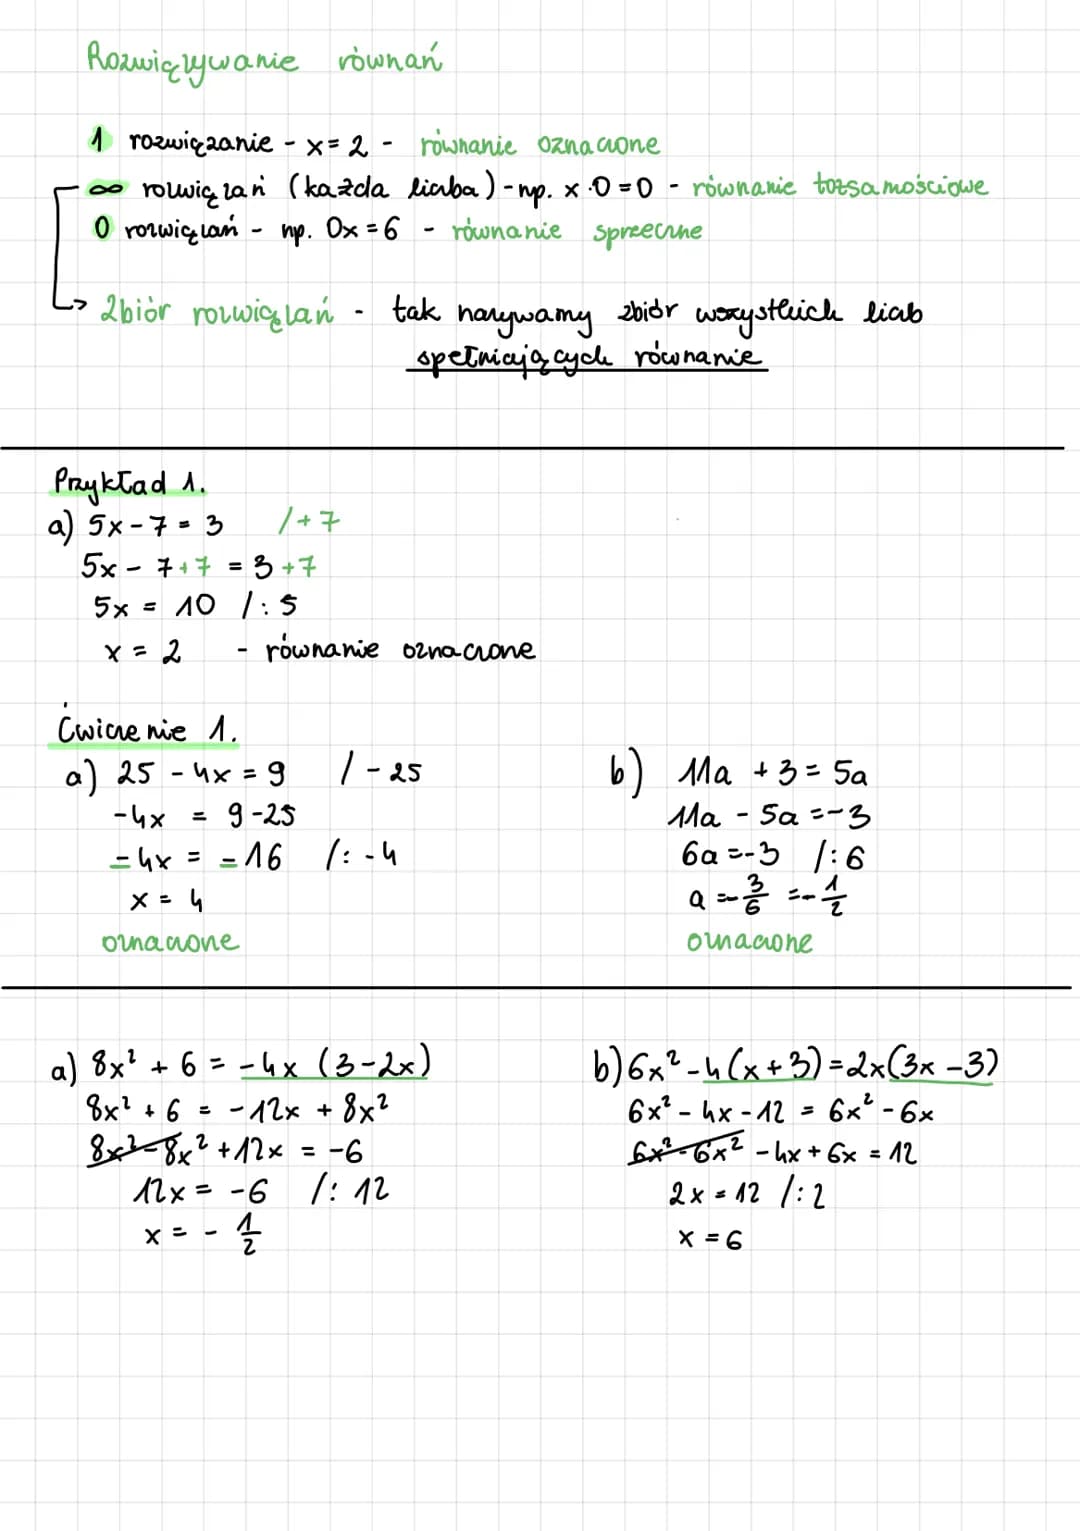 Rozwiązywanie równań
1 rozwiązanie - x = 2 - równanie oznaczone
∞ rozwiązań (każda liczba) - np. x · 0 = 0 - równanie tożsamościowe
0 rozwiązań - np. 0x = 6 - równanie sprzeczne
Zbiór rozwiązań - tak nazywamy zbiór wszystkich liczb
spełniających równanie
Przykład 1.
a) 5x - 7 = 3 /+7
5x - 7 + 7 = 3 + 7
5x = 10 /: 5
x = 2 - równanie oznaczone
Ćwiczenie 1.
a) 25 - 4x = 9 / - 25
-4x = 9 - 25
-4x = -16 /: -4
x = 4
oznaczone
b) 11a + 3 = 5a
11a - 5a = -3
6a = -3 /: 6
a = -3/6 = -1/2
oznaczone
a) 8x² + 6 = -4x (3 - 2x)
8x² + 6 = -12x + 8x²
8x² - 8x² + 12x = -6
12x = -6 /: 12
x = - 1/2
b) 6x² - 4(x + 3) = 2x(3x - 3)
6x² - 4x - 12 = 6x² - 6x
6x² - 6x² - 4x + 6x = 12
2x = 12 /: 2
x = 6